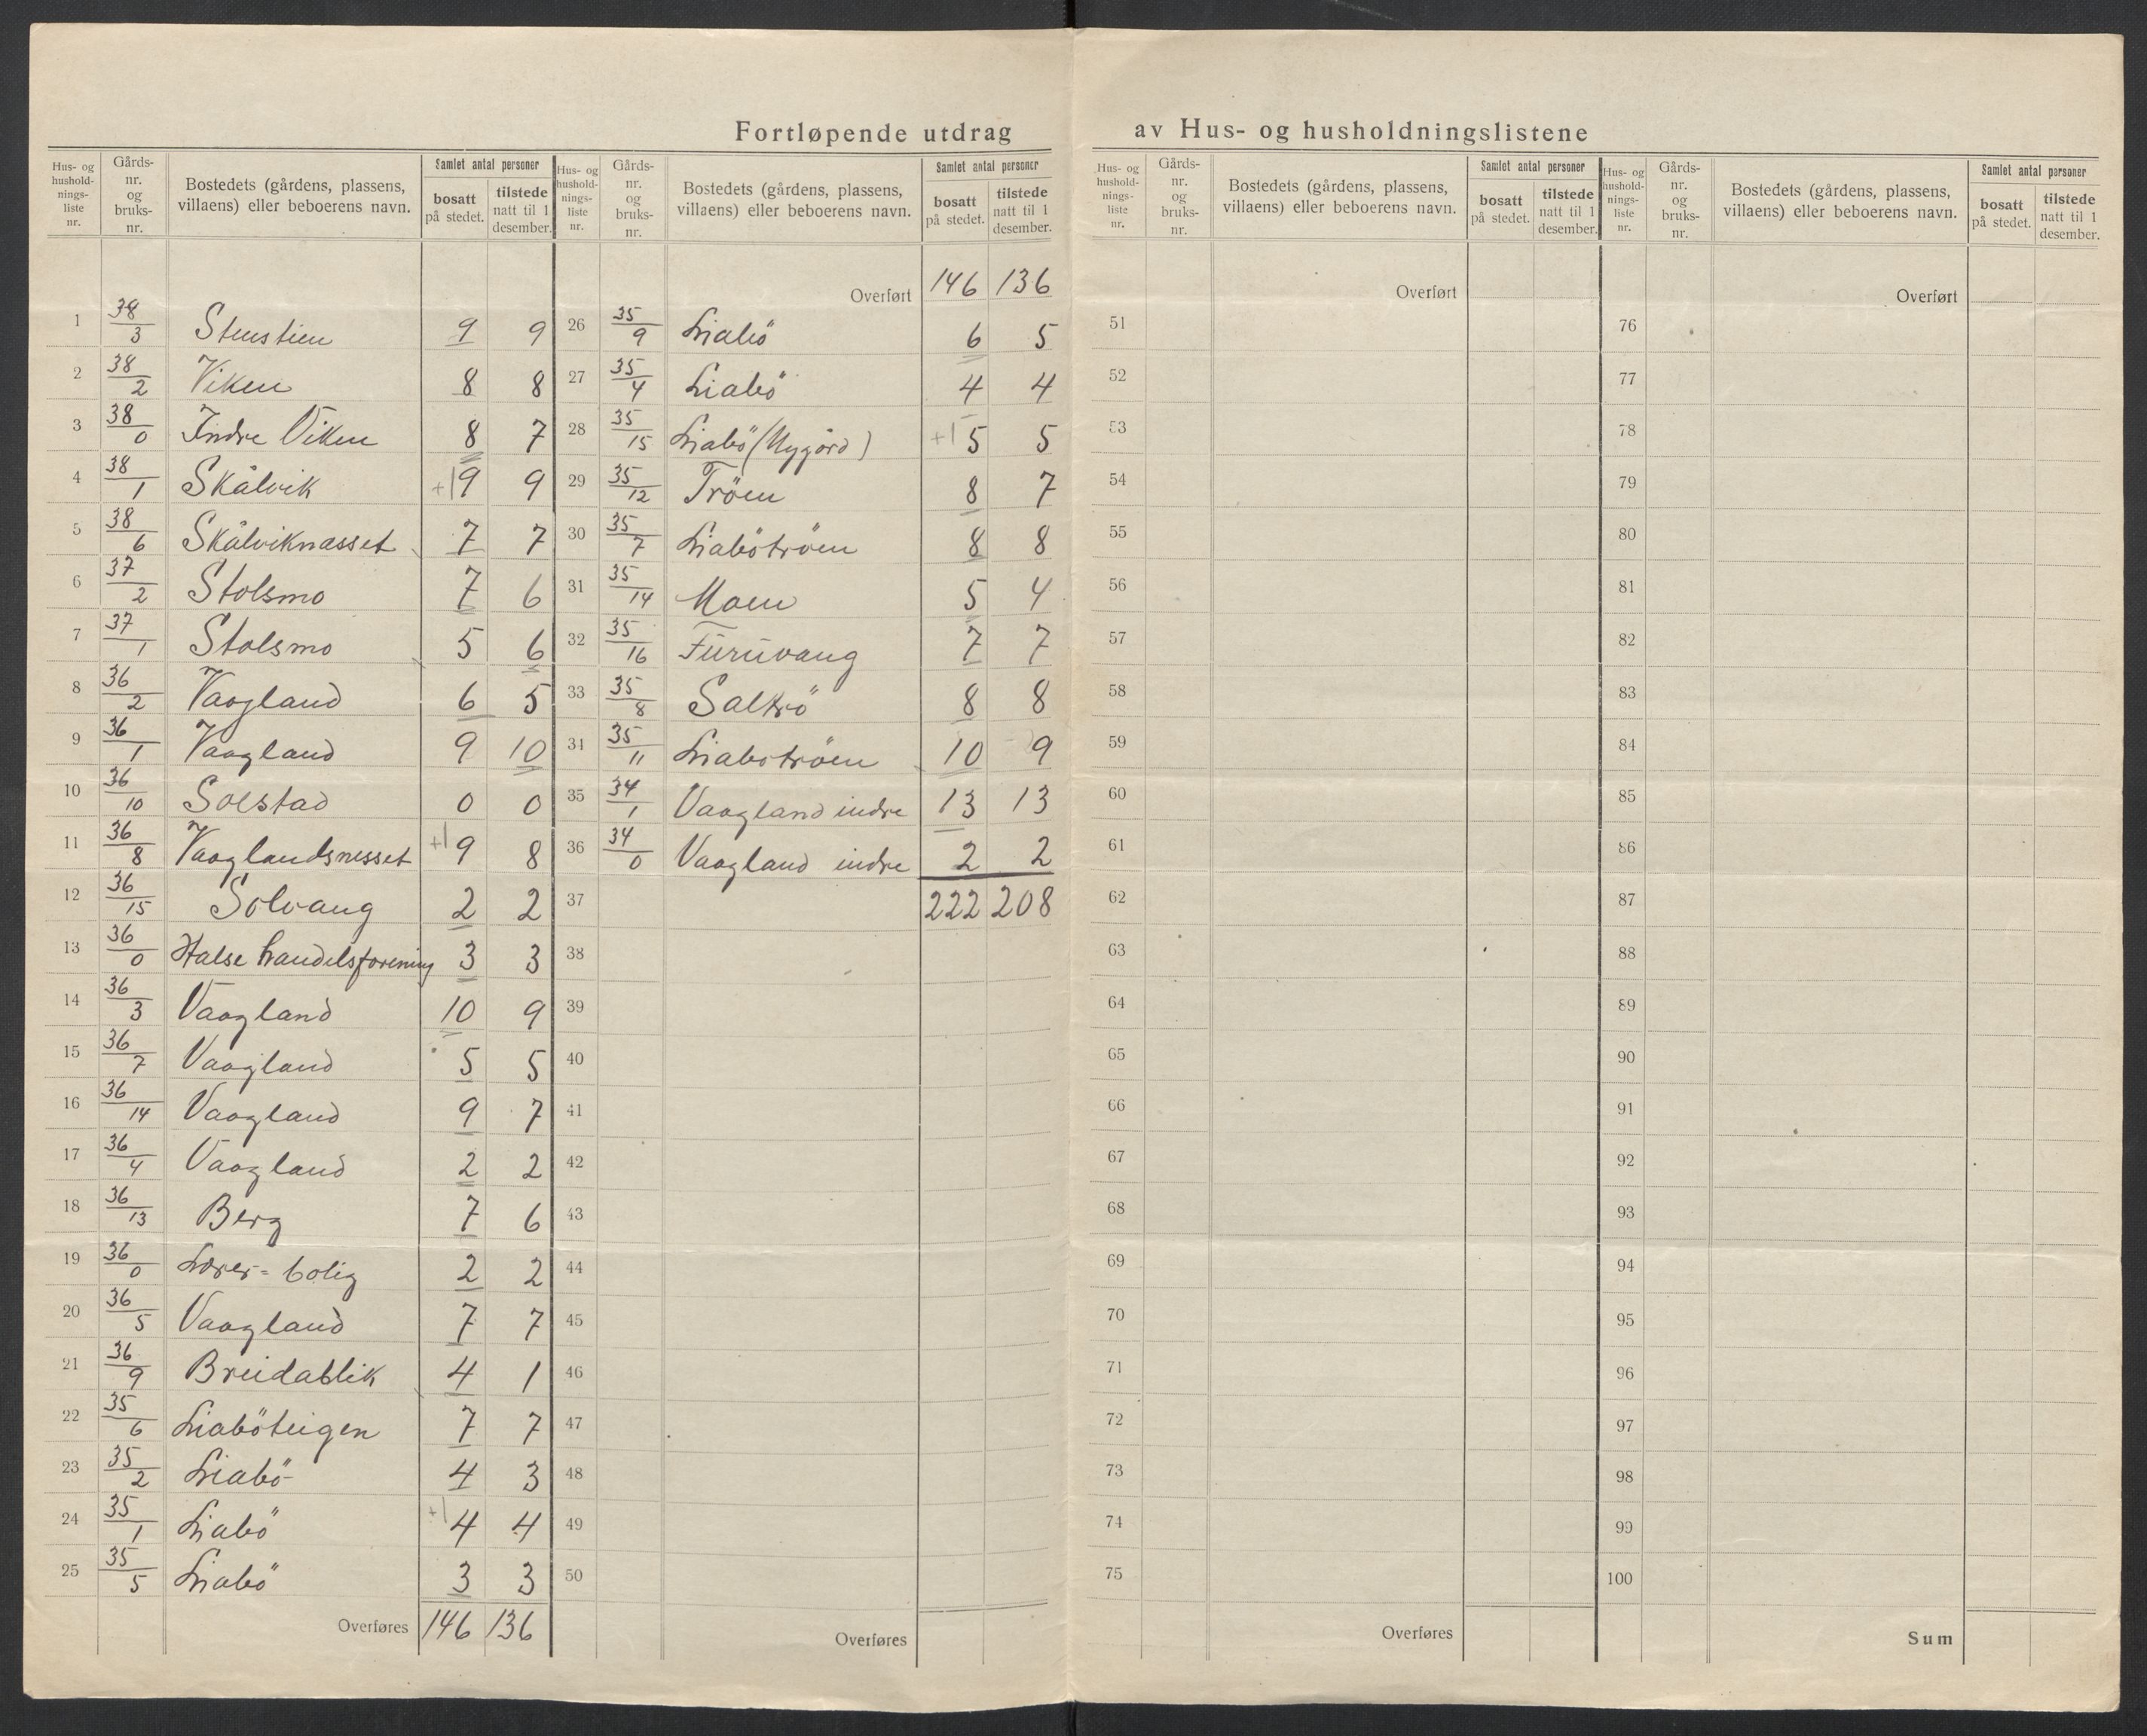 Fortløpende utdrag av Hus- og husholdningslistene
Hus- og husholdnings-liste nr. | Gårds-nr. og bruks-nr. | Bostedets (gårdens, plassens, villaens) eller beboerens navn. | Samlet antal personer | bosatt på stedet. | tilstede natt til 1 desember.
1 38/3 Stenstien 9 9
2 38/2 Viken 8 8
3 38/0 Indre Viken 8 7
4 38/1 Skålvik +1 9 9
5 38/6 Skålviknasset 7 7
6 37/2 Stolsmo 7 6
7 37/1 Stolsmo 5 6
8 36/2 Vaagland 6 5
9 36/1 Vaagland 9 10
10 36/10 Solstad 0 0
11 36/8 Vaaglandsnesset +1 9 8
12 36/15 Solvang 2 2
13 36/0 Halse handelsforening 3 3
14 36/3 Vaagland 10 9
15 36/7 Vaagland 5 5
16 36/14 Vaagland 9 7
17 36/4 Vaagland 2 2
18 36/13 Berg 7 6
19 36/0 Lærer= bolig 2 2
20 36/5 Vaagland 7 7
21 36/9 Breidablik 4 1
22 35/6 Liaböteigen 7 7
23 35/2 Liabö 4 3
24 35/1 Liabö +1 4 4
25 35/5 Liabö 3 3
Overføres 146 136
Hus- og husholdnings-liste nr. | Gårds-nr. og bruks-nr. | Bostedets (gårdens, plassens, villaens) eller beboerens navn. | Samlet antal personer | bosatt på stedet. | tilstede natt til 1 desember.
Overført 146 136
26 35/9 Liabö 6 5
27 35/4 Liabö 4 4
28 35/15 Liabö (Nygård) +1 5 5
29 35/12 Tröen 8 7
30 35/7 Liabötröen 8 8
31 35/14 Moen 5 4
32 35/16 Furuvang 7 7
33 35/8 Saltrö 8 8
34 35/11 Liabotröen 10 9
35 34/1 Vaagland indre 13 13
36 34/0 Vaagland indre 2 2
37 222 208
38
39
40
41
42
43
44
45
46
47
48
49
50
Overføres
Hus- og husholdnings-liste nr. | Gårds-nr. og bruks-nr. | Bostedets (gårdens, plassens, villaens) eller beboerens navn. | Samlet antal personer | bosatt på stedet. | tilstede natt til 1 desember.
Overført
51
52
53
54
55
56
57
58
59
60
61
62
63
64
65
66
67
68
69
70
71
72
73
74
75
Overføres
Hus- og husholdnings-liste nr. | Gårds-nr. og bruks-nr. | Bostedets (gårdens, plassens, villaens) eller beboerens navn. | Samlet antal personer | bosatt på stedet. | tilstede natt til 1 desember.
Overført
76
77
78
79
80
81
82
83
84
85
86
87
88
89
90
91
92
93
94
95
96
97
98
99
100
Sum